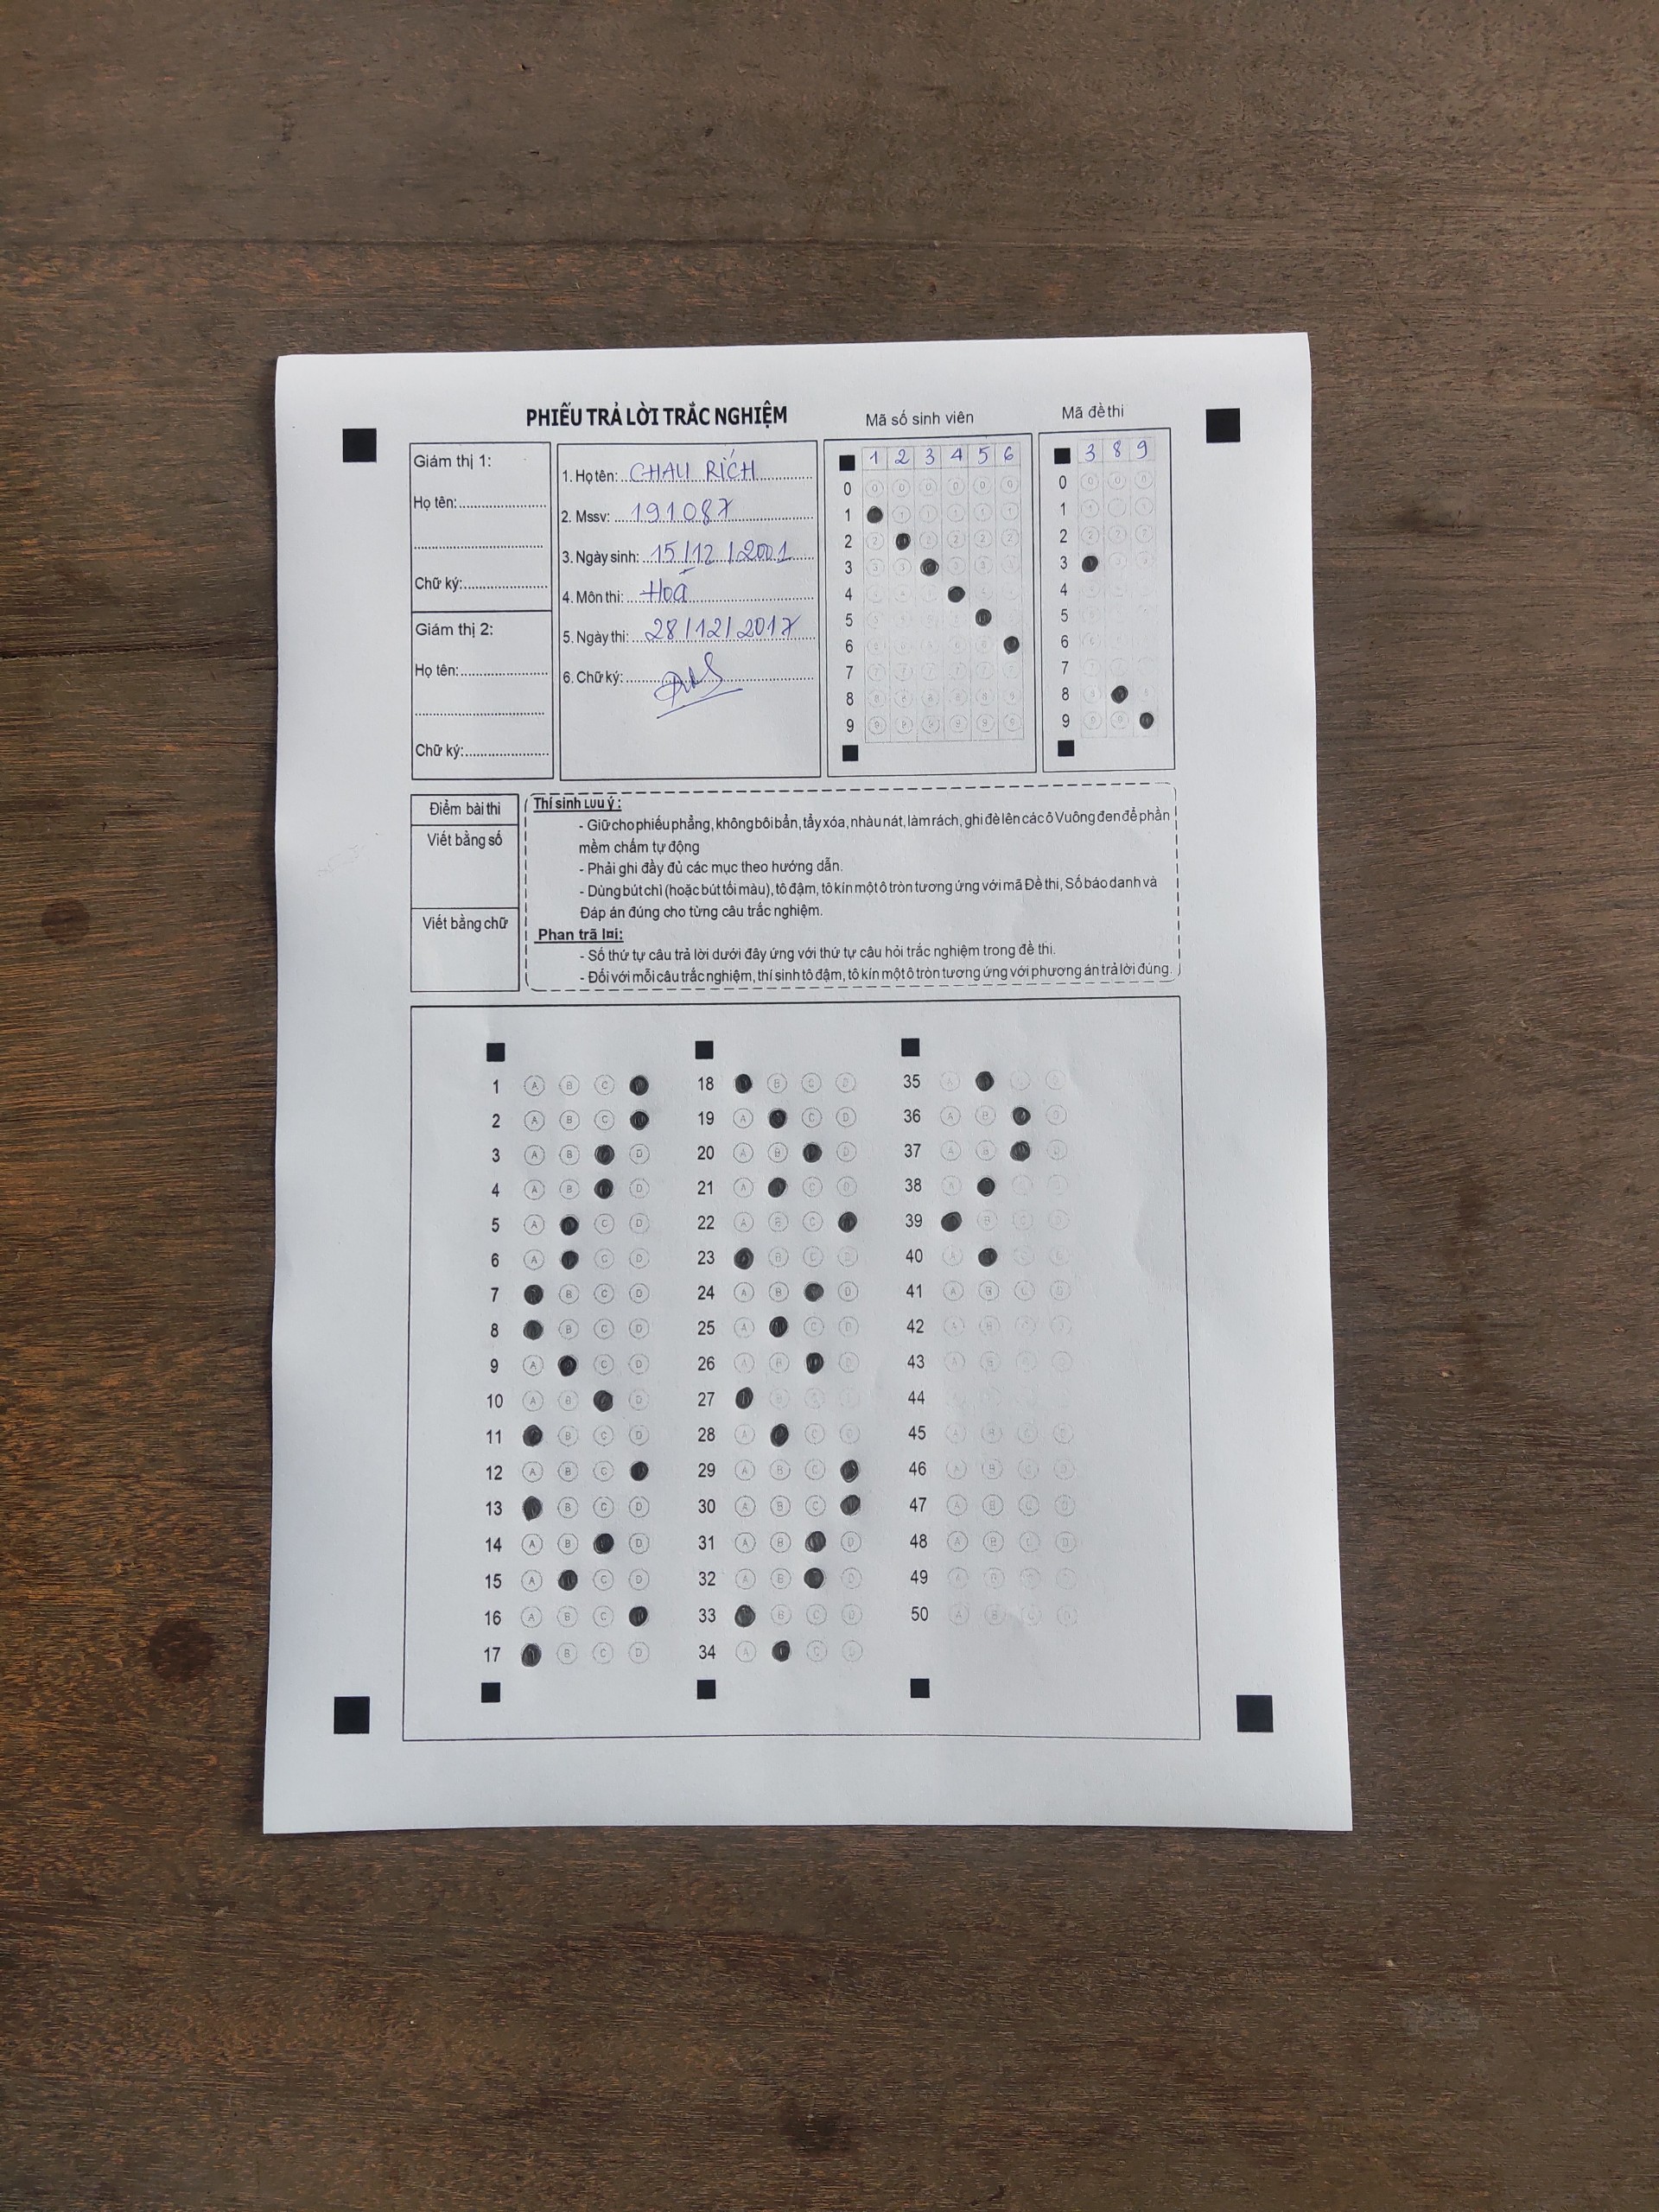 PHIẾU TRẢ LỜI TRẮC NGHIỆM
Mã số sinh viên
Mã đề thi
Giám thị 1:
Họ tên:
Chữ ký:
Giám thị 2:
Họ tên:
Chữ ký:
1. Họ tên: CHAU RÍCH
2. Mssv: 191087
3. Ngày sinh: 15/12/2001
4. Môn thi: Hoá
5. Ngày thi: 28/12/2017
6. Chữ ký:
1 2 3 4 5 6
0
1
2
3
4
5
6
7
8
9
3 8 9
0
1
2
3
4
5
6
7
8
9
Điểm bài thi
Viết bằng số
Viết bằng chữ
Thí sinh Lưu ý :
- Giữ cho phiếu phẳng, không bôi bẩn, tẩy xóa, nhàu nát, làm rách, ghi đè lên các ô Vuông đen để phần
mềm chấm tự động
- Phải ghi đầy đủ các mục theo hướng dẫn.
- Dùng bút chì (hoặc bút tối màu), tô đậm, tô kín một ô tròn tương ứng với mã Đề thi, Số báo danh và
Đáp án đúng cho từng câu trắc nghiệm.
Phan trã lời:
- Số thứ tự câu trả lời dưới đây ứng với thứ tự câu hỏi trắc nghiệm trong đề thi.
- Đối với mỗi câu trắc nghiệm, thí sinh tô đậm, tô kín một ô tròn tương ứng với phương án trả lời đúng.
1 A B C
2 A B C
3 A B D
4 A B D
5 A C D
6 A C D
7 B C D
8 B C D
9 A C D
10 A B D
11 B C D
12 A B C
13 B C D
14 A B D
15 A C D
16 A B C
17 B C D
18 B C D
19 A C D
20 A B D
21 A C D
22 A B C
23 B C D
24 A B D
25 A C D
26 A B D
27 B
28 A C D
29 A B C
30 A B C
31 A B D
32 A B D
33 B C D
34 A C D
35 A
36 A B D
37 A B D
38 A
39 B C D
40 A
41 A B C D
42 A B
43 A B
44
45 A B C D
46 A B C D
47 A B C D
48 A B C D
49 A B
50 A B C D